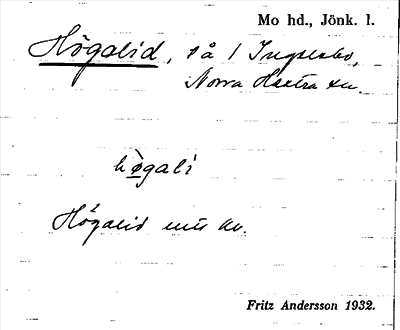 Mo hd., Jönk. l.
Högalid, på 1 Ingelsbo,
Norra Hestra sn.
hø̀galì
Högalid
Fritz Andersson 1932.